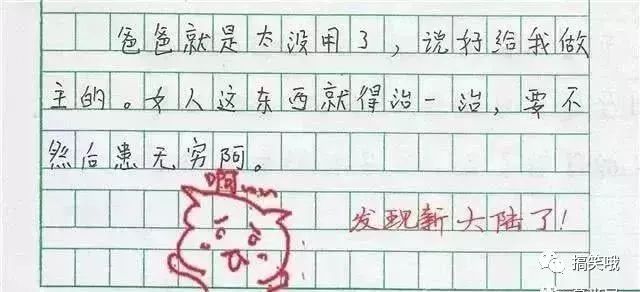 爸爸就是太没用了，说好给我做
主的。女人这东西就得治一治，要不
然后患无穷阿。
啊
发现新大陆了！
搞笑哦